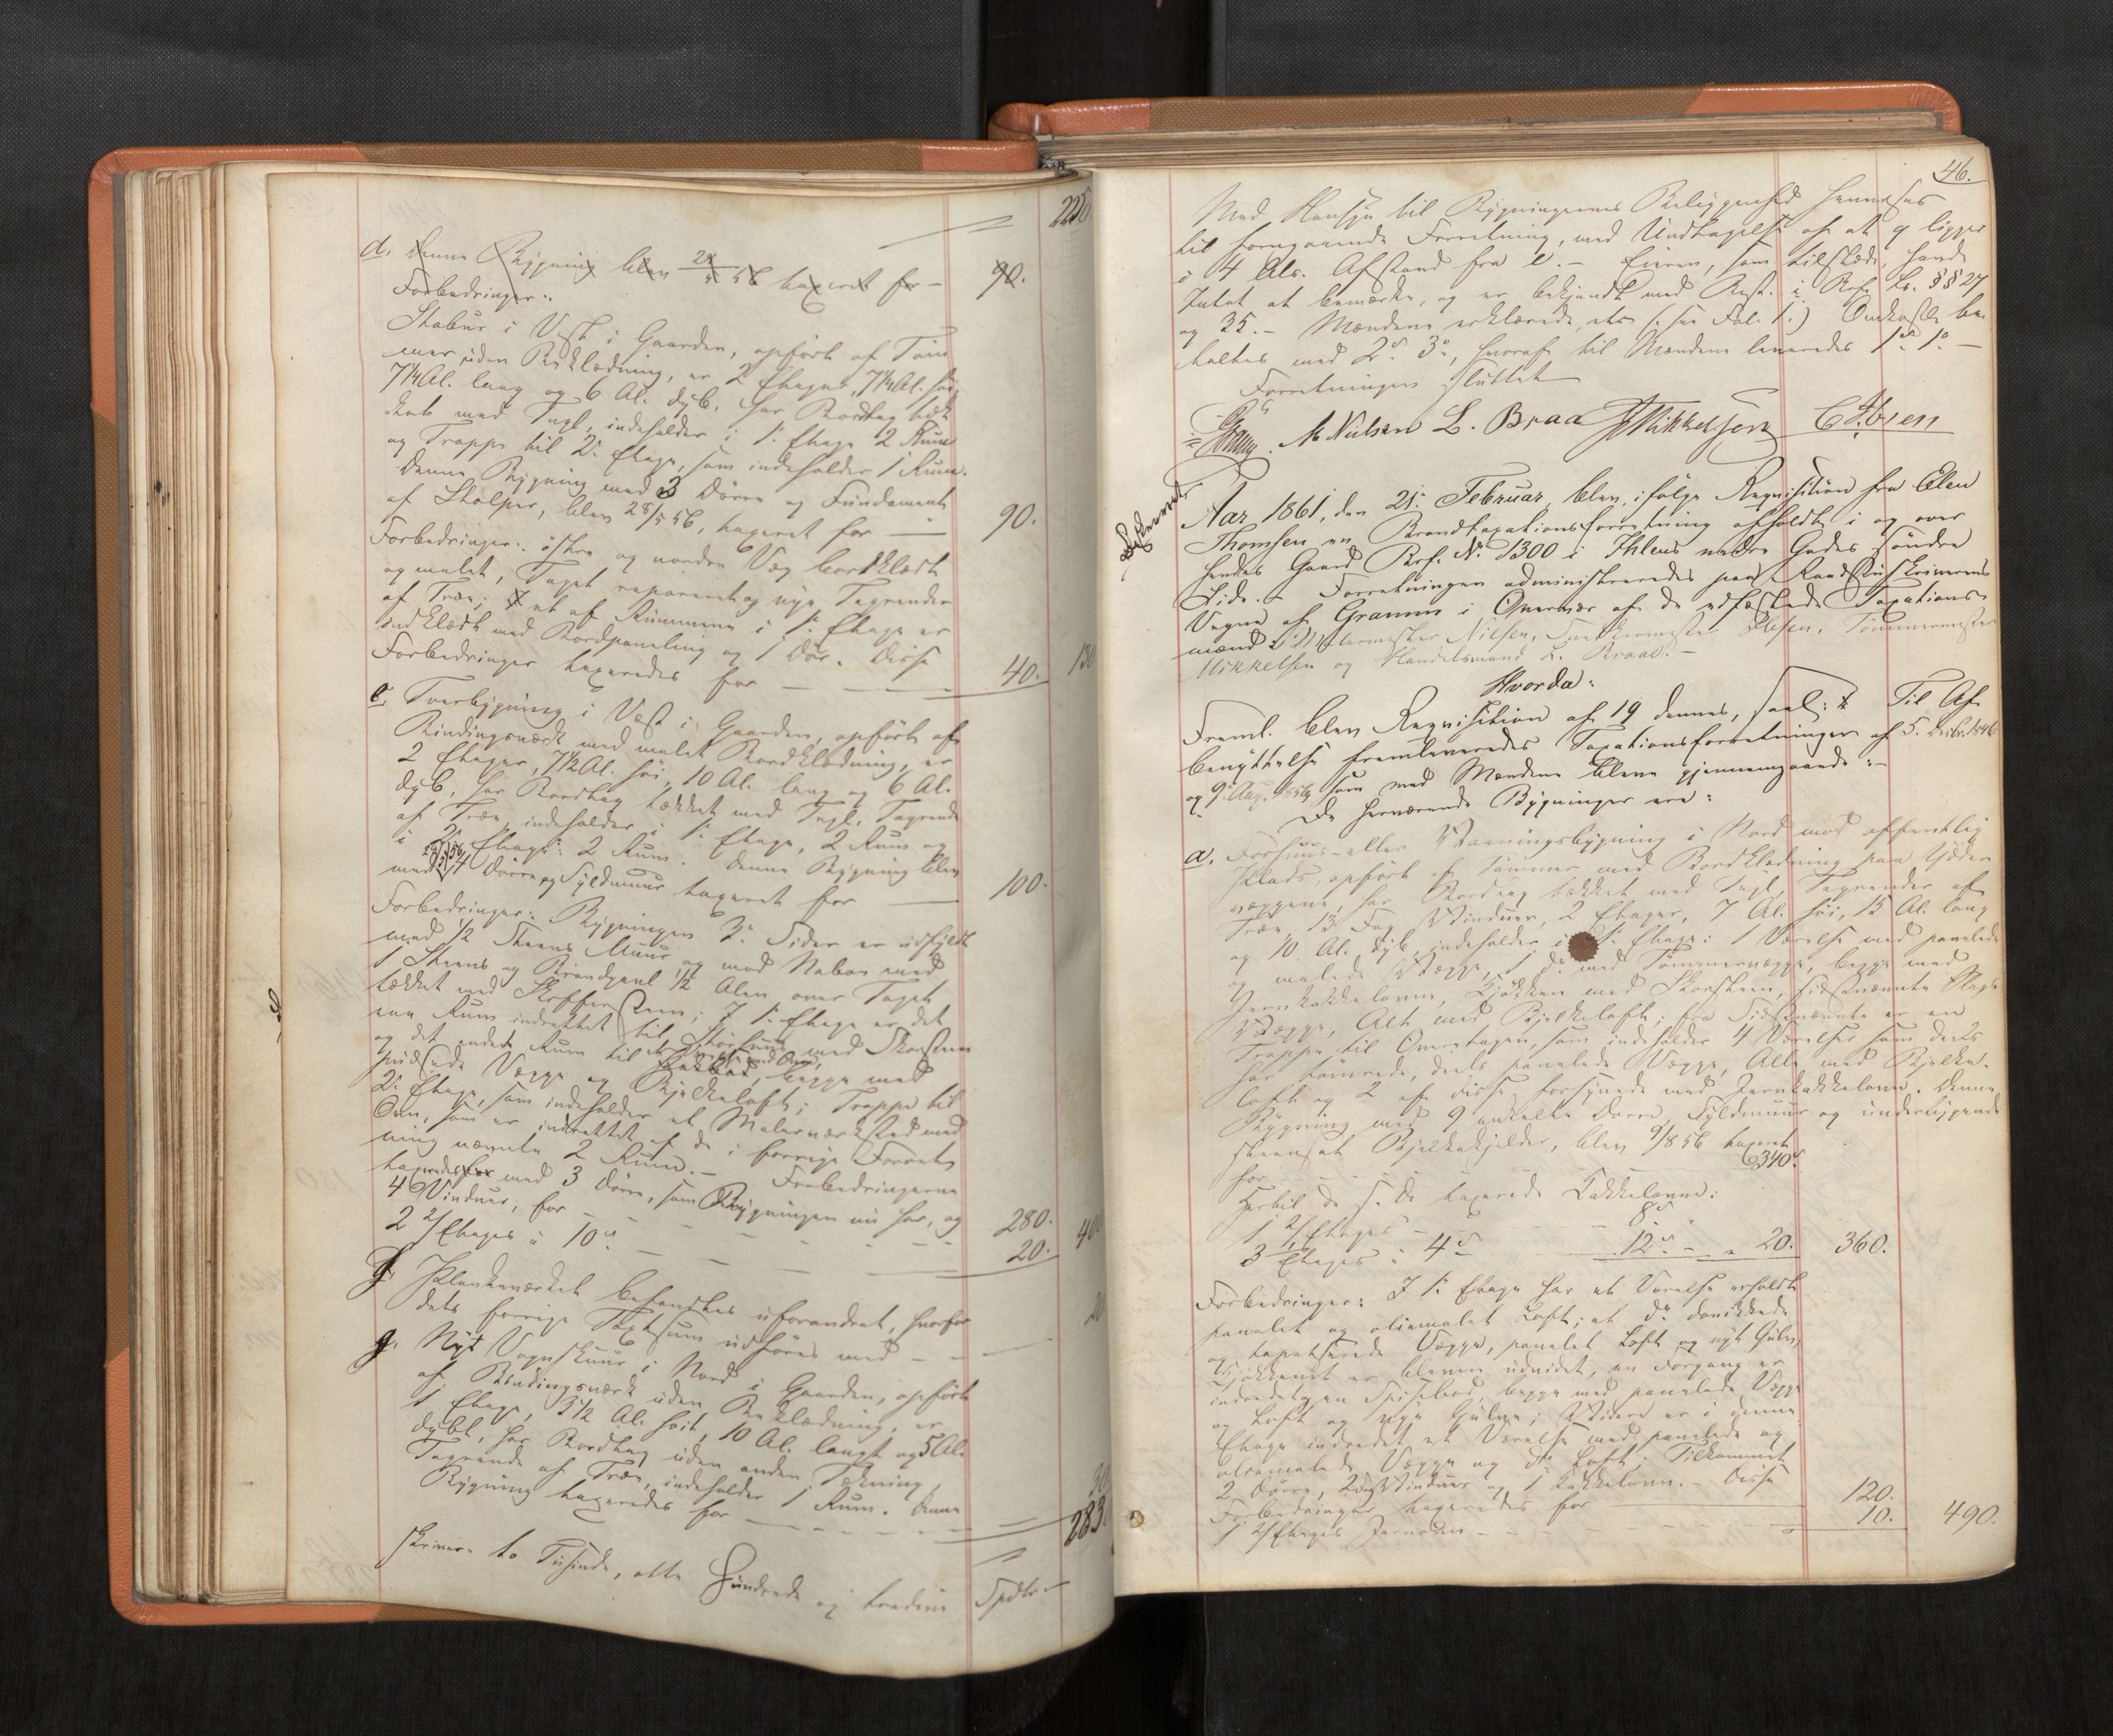 2250
d. Denne Bygning blev 28/5 56 taxeret for — 90.
Forbedringer:
Stabur i Vest i Gaarden, opført af Töm
mer uden Beklædning, er 2 Etager, 7 1/4 Al. høi,
7 1/4 Al. lang og 6 Al. dyb, har Bordtag tæk
ket med Tegl, indeholder i 1ste Etage 2 Rum
og Trappe til 2den Etage, som indeholder 1 Rum.
Denne Bygning med 3 Dørre og Fundament
af Stolper, blev 28/5 56, taxeret for — 90.
Forbedringer: östre og nordre Væg bordklædt
og malet, Taget repareret og nye Tagrender
af Træ; et af Rummene i 1ste Etage er
indklædt med Bordpaneling og 1 Dør. Disse
Forbedringer taxeredes for — 40. 130
e. Tverbygning i Vest i Gaarden, opført af
Bindingsværk med malet Bordklædning, er
2 Etager, 7 1/2 Al. høi, 10 Al. lang og 6 Al.
dyb, har Bordtag tækket med Tegl, Tagrende
af Træ, indeholder i 1ste Etage, 2 Rum og
i 2den Etage: 2 Rum. Denne Bygning blev
med 4 Dørre og Syldmuur taxeret for — 100.
Forbedringer: Bygningens 3de Sider er udfyldt
med 1/2 Steens Muur og mod Naboen med
1 Steens og Brandgavl 1/2 Alen over Taget,
tækket med Skiffersteen; I 1ste Etage er det
ene Rum indrettet til med Skorsteen
og det andet Rum til begge med
pudsede Vægge og Bjelkeloft; Trappe til
2den Etage, som indeholder et Malerværksted med
Ovn, som er indrettet af de i forrige Forret
ning nævnte 2 Rum. — Forbedringerne
taxeredes med 3 Dørre, som Bygningen nu har, og
4 Vinduer, for — 280.
2 2/Etages à 10 — 20. 400
f. Plankeværket befandtes uforandret, hvorfor
dets forrige Taxtsum udføres med — 20
g. Nyt Vognskuur i Nord i Gaarden, opført
af Bindingsværk uden Beklædning, er
1 Etage, 3 1/2 Al. høit, 10 Al. langt og 5 Al.
dybt, har Bordtag uden anden Tækning,
Tagrende af Træ, indeholder 1 Rum. Denne
Bygning taxeredes for — 30
2830
skriver to Tusinde, otte Hundrede og tredive Spdlr.
46.
Med Hensyn til Bygningernes Beliggenhed henvises
til foregaaende Forretning, med Undtagelse af at g ligger
i 4 Als. Afstand fra e. — Eieren, som tilstede, havde
Intet at bemærke, og er bekjendt med Best. i Brf. Lov §§ 27
og 35. — Mændene erklærede, etc. (see Fol. 1.) Omkostn. be
taltes med 2 3, hvoraf til Mændene leveredes 1 1 —
Forretningen sluttet
Gram. M Nielsen L. Braa J Mikkelsen C Ibsen
Aar 1861, den 21de Februar, blev, ifølge Reqvisition fra Elen
Thomsen en Brandtaxationsforretning afholdt i og over
hendes Gaard Brf. No 1300 i Ihlens nedre Gades søndre
Side. — Forretningen administreredes paa Raadstueskriverens
Vegne af Gramm i Overvær af de edfæstede Taxations
mænd Nielsen, Snedkermester Ibsen, Tømmermester
Mikkelsen og Handelsmand L. Braae. —
Hvorda:
Freml. blev Reqvisition af 19 dennes, saal: * Til Af
benyttelse fremleveredes Taxationsforretninger af 5. Decbr. 1846
og 9de Aug. 1856 som med Mændene bleve gjennemgaaede: —
De herværende Bygninger ere:
a. Forhuus- eller Vaaningsbygning i Nord mod offentlig
Plads, opført af Tømmer med Bordklædning paa Yder
væggene, har Bordtag tækket med Tegl, Tagrender af
Træ, 13 Fag Vinduer, 2 Etager, 7 Al. høi, 15 Al. lang
og 10 Al. dyb, indeholder i 1ste Etage: 1 Værelse med panelede
og malede Vægge, 1 do med Tømmervægge, begge med
Jernkakkelovn, Kjøkken med Skorsteen,
Vægge, Alt med Bjelkeloft; fra Sidstnævnte er en
Trappe til Overetagen, som indeholder 4 Værelser som deels
har tømrede, deels panelede Vægge, Alle med Bjelke-
loft og 2 af disse forsynede med Jernkakkelovn. Denne
Bygning med 9 enkelte Dørre, Syldmuur og underliggende
steensat Bjelkekjelder, blev 9/8 56 taxeret
for — 340
Hertil de s. D. taxerede Kakkelovne:
1 2/Etages — 8
3 Etages à 4 — 12 — 20. 360.
Forbedringer: I 1ste Etage har et Værelse erholdt
panelet og oliemalet Loft; et do
og tapetserede Vægge, panelet Loft og nyt Gulv,
Kjøkkenet er bleven udvidet, en Forgang er
indredet, en Spisebod, begge med panelede Vægge
og Loft og nye Gulve; Videre er i denne
Etage indredet et Værelse med panelede og
oliemalede Vægge og dto Loft; Tilkommet
2 Dørre, 2 Vinduer og 1 Kakkelovn. — Disse
Forbedringer taxeredes for — 120.
1 2/Etages Jernovn — 10. 490.